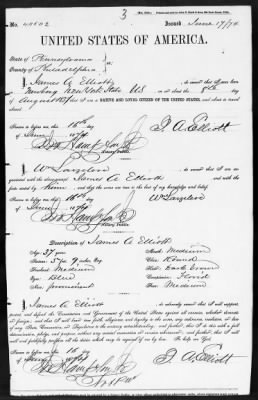 3
No. 40502 Issued June 17/74
UNITED STATES OF AMERICA.
State of Pennsylvania
County of Philadelphia
I, James A Elliott do swear that I was born
in New York State US on the 8th
day of August 1837 am a NATIVE AND LOYAL CITIZEN OF THE UNITED STATES, and about
Sworn to before me this 16th day
of June 1874
J. A. Elliott
Notary Public
I,
acquainted with the above-named James A Elliott and with the facts
stated by him and that the same are true to the best of my knowledge and belief
Sworn to before me this 16th day
of June 1874
Notary Public
Description of James A Elliott
Age: 37 years
Mouth: Medium
Stature: 5 feet 9 inches, Eng.
Chin: Round
Forehead: Medium
Hair: Dark Brown
Eyes: Blue
Complexion: Florid
Nose: prominent
Face: Medium
I, James A. Elliott do solemnly swear that I will support,
protect, and defend the Constitution and Government of the United States against all enemies, whether domestic
or foreign; and that I will bear true faith, allegiance, and loyalty to the same, any ordinance, resolution, or law
of any State, Convention, or Legislature to the contrary notwithstanding; and further, that I do this with a full
determination, pledge, and purpose, without any mental reservation or evasion whatsoever; and further, that I will
well and faithfully perform all the duties which may be required of me by law: So help me God.
Sworn to before me this 16
day of June 1874
J. A. Elliott